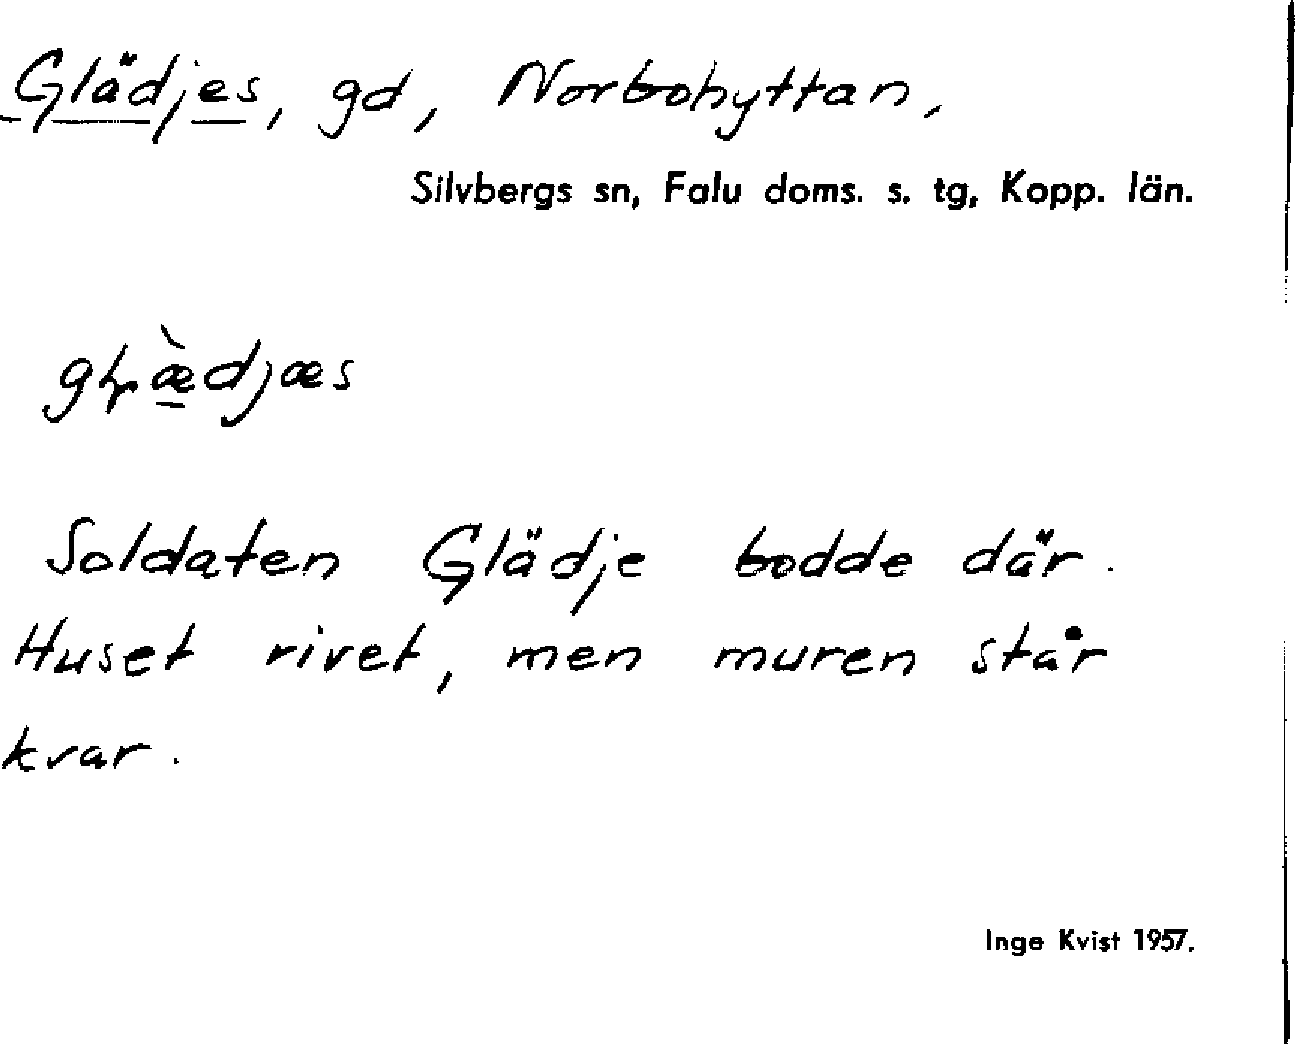 Glädjes, gd, Norbohyttan,
Silvbergs sn, Falu doms. s. tg, Kopp. län.
Soldaten Glädje bodde där.
Huset rivet, men muren står
kvar.
Inge Kvist 1957.